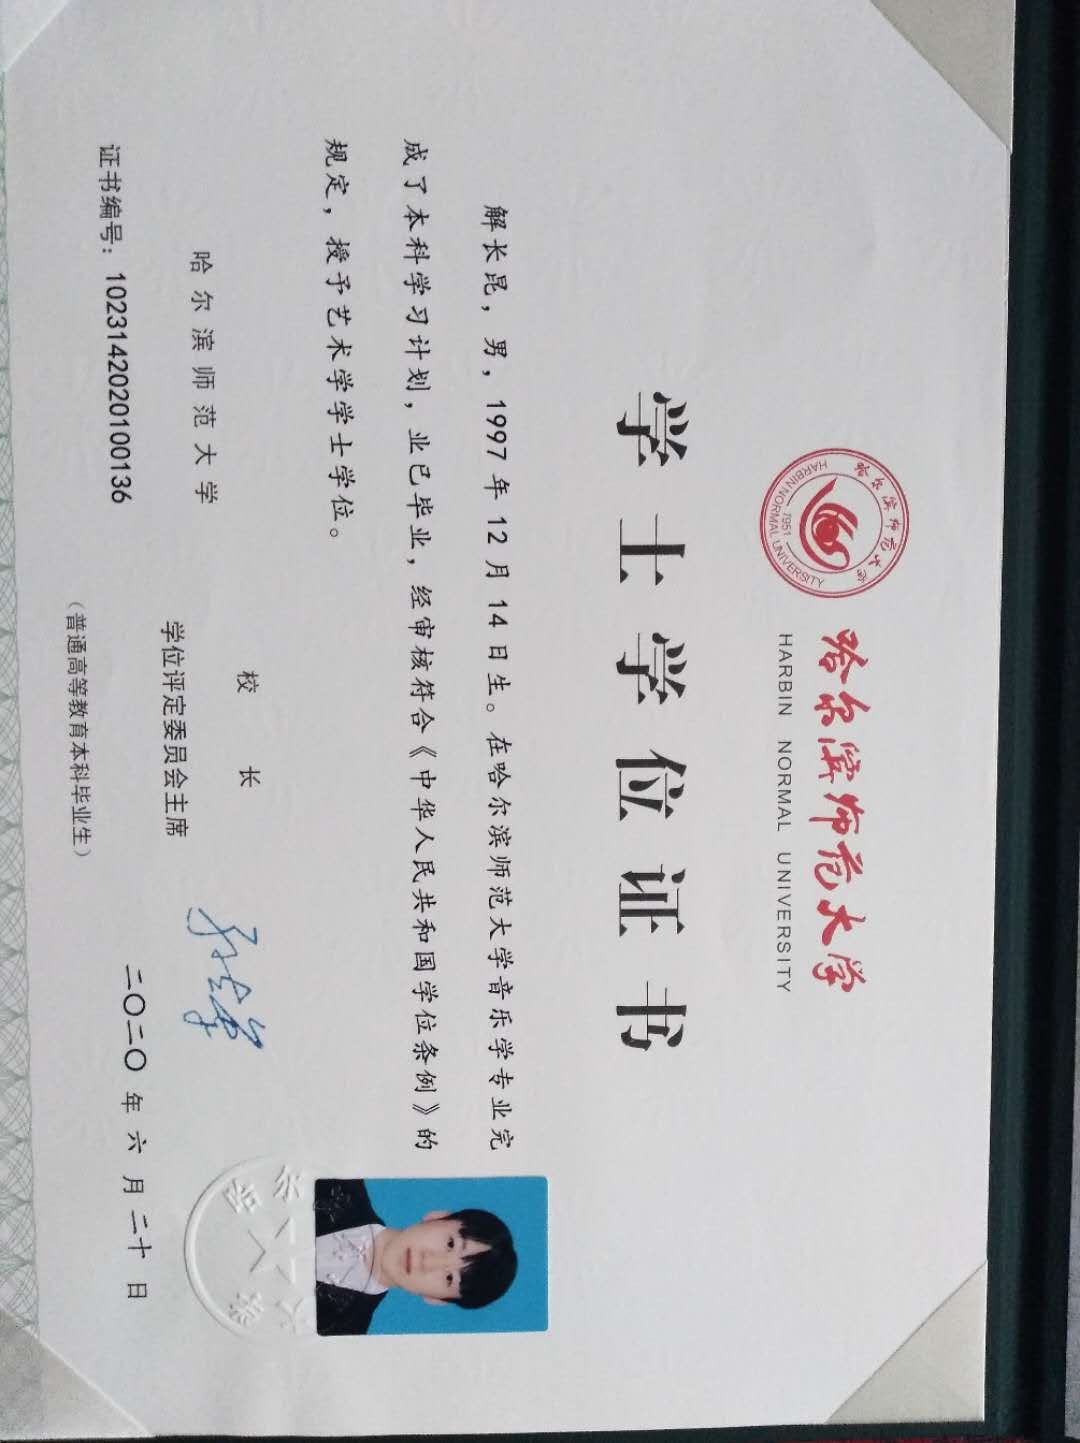 哈尔滨师范大学
HARBIN NORMAL UNIVERSITY
哈尔滨师范大学
HARBIN NORMAL UNIVERSITY
1951
学士学位证书
解长昆，男，1997年12月14日生。在哈尔滨师范大学音乐学专业完
成了本科学习计划，业已毕业，经审核符合《中华人民共和国学位条例》的
规定，授予艺术学学士学位。
校长
哈尔滨师范大学
学位评定委员会主席
证书编号：1023142020100136
二〇二〇年六月二十日
（普通高等教育本科毕业生）